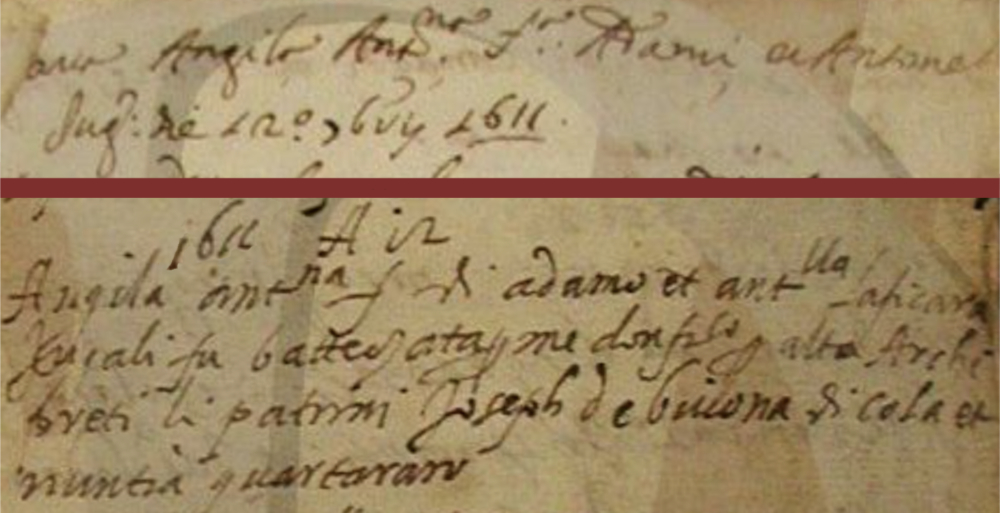 Angila Ant.na f.a Adami et Antonel
Jug.: de 12º, buy 1611.
1611 A i2
Angila ant na f di adamo et ant lla
Jugali fu batteᵹata me don alta Archi
breti li patrini Joseph de biuona di cola et
nuntia quartararo